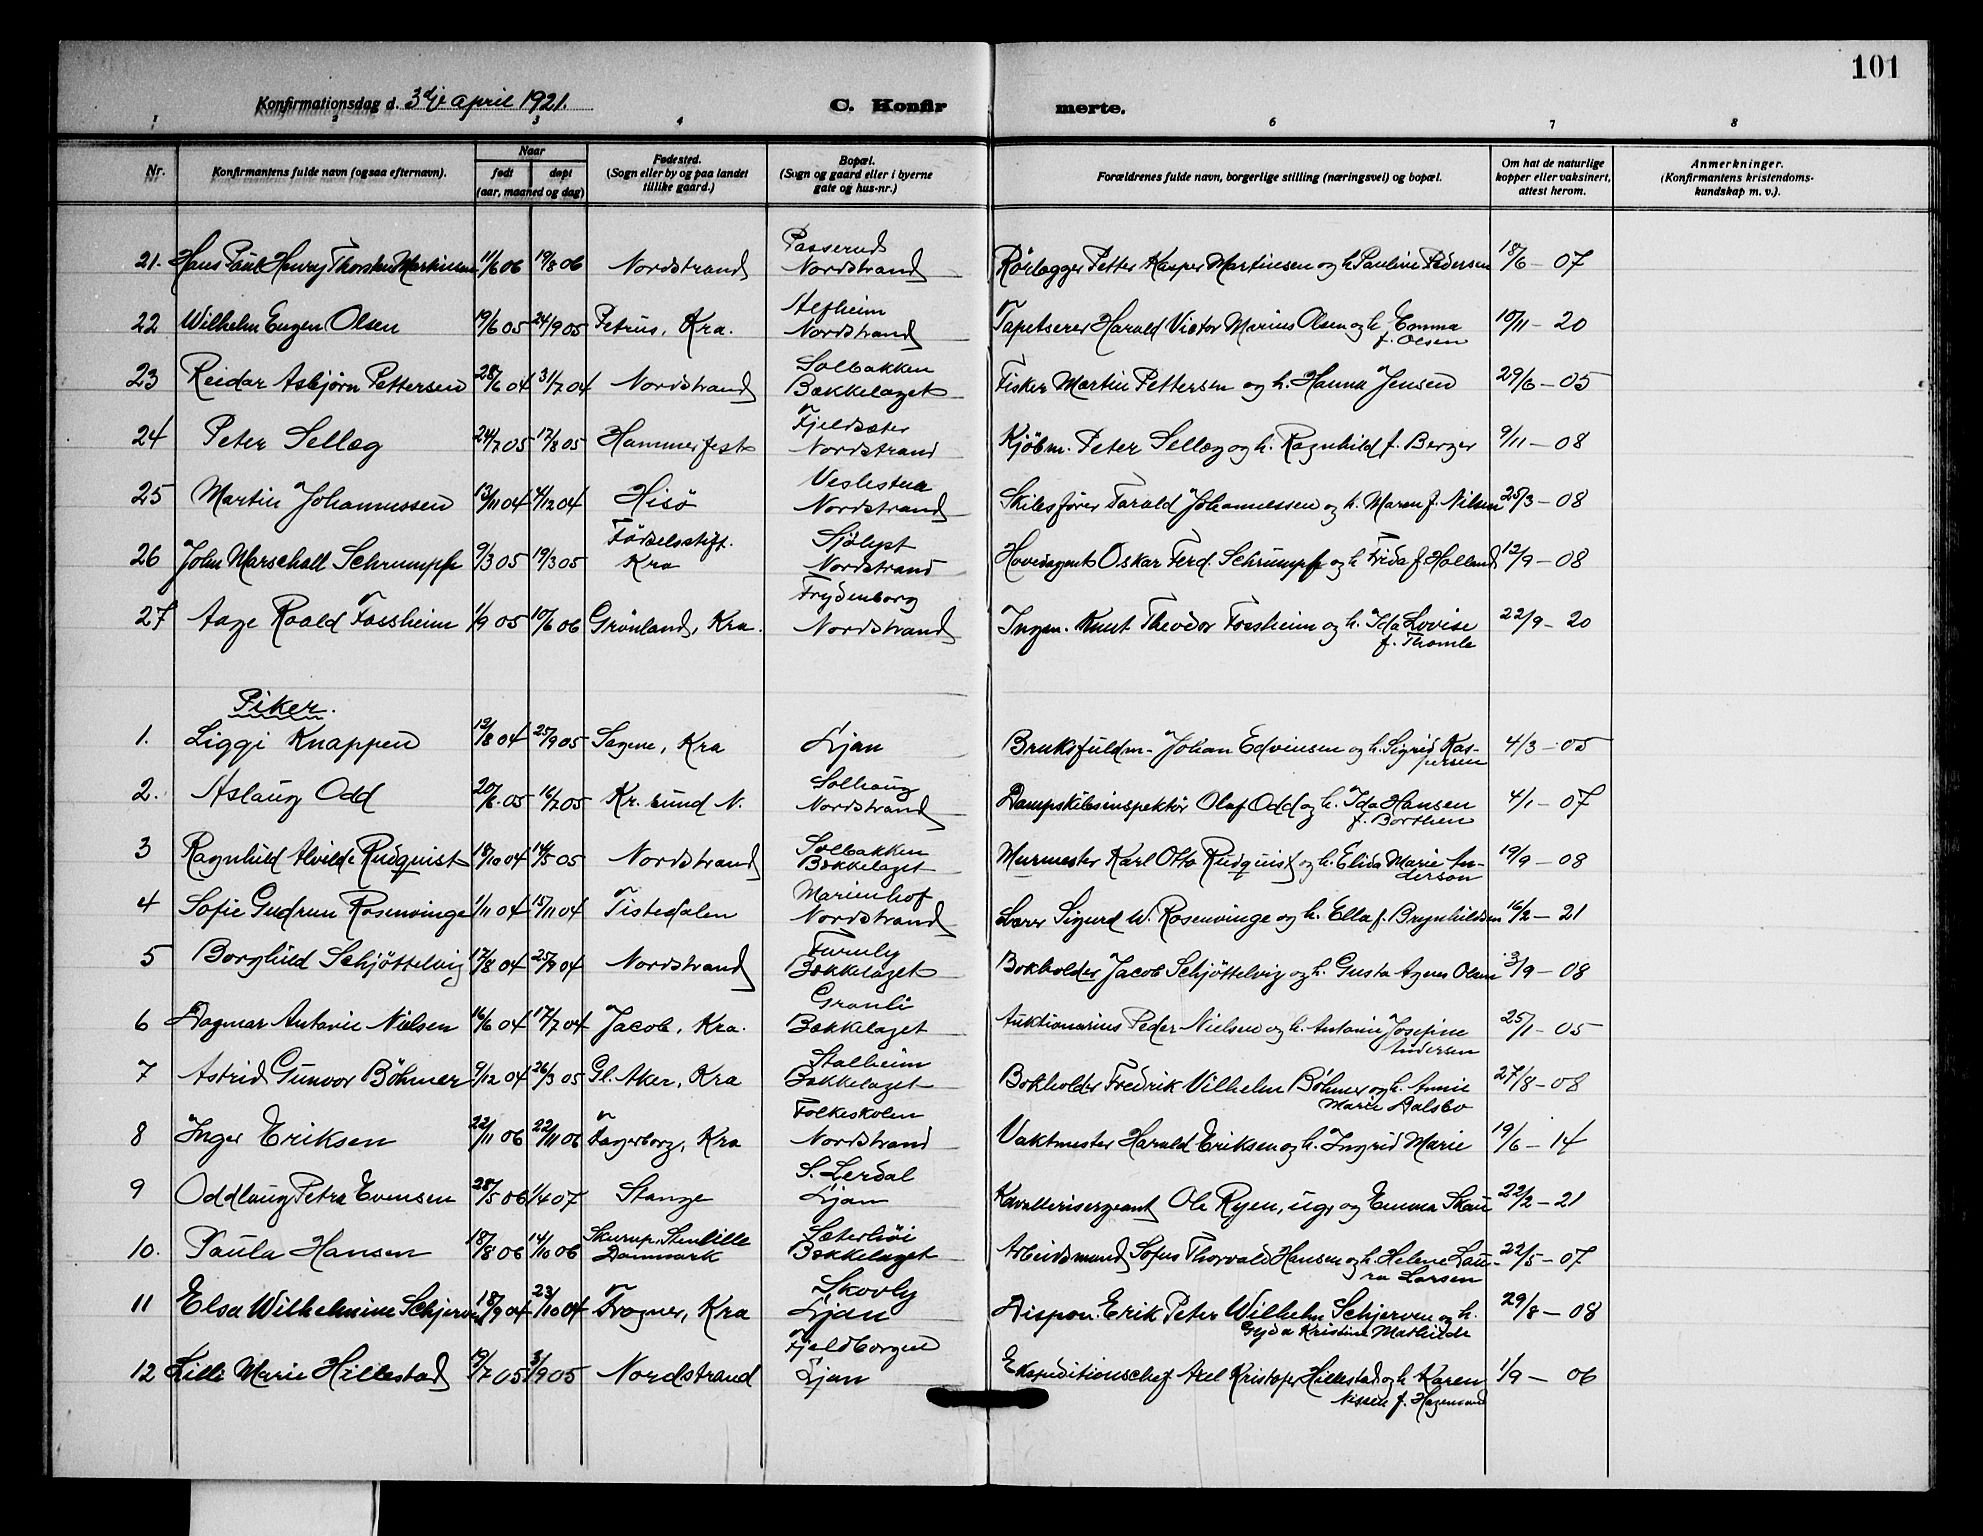 101
Konfirmationsdag d. 3dje april 1921.
C. Konfir merte.
1 2 3 4 6 7 8
Nr. Konfirmantens fulde navn (ogsaa efternavn). Naar født døpt (aar, maaned og dag) Fødested. (Sogn eller by og paa landet tillike gaard.) Bopæl. (Sogn og gaard eller i byerne gate og hus-nr.) Forældrenes fulde navn, borgerlige stilling (næringsvei) og bopæl. Om hat de naturlige kopper eller vaksinert, attest herom. Anmerkninger. (Konfirmantens kristendoms-kundskap m. v.).
Passerud
21. Hans Paul Henry Thorstein Martinsen 11/6 06 19/8 06 Nordstrand Nordstrand Rørlægger Petter Kasper Martinsen og h. Pauline Pedersen 18/6 – 07
Alfheim
22 Wilhelm Eugen Olsen 19/6 05 24/9 05 Petrus, Kra. Nordstrand Tapetserer Harald Victor Marius Olsen og h. Emma 10/11 – 20
f. Olsen
Solbakken
23 Reidar Asbjørn Pettersen 28/6 04 31/7 04 Nordstrand Bækkelaget Fisker Martin Pettersen og h. Hanna Jensen 29/6 – 05
Fjeldsæter
24 Peter Sellæg 24/7 05 17/8 05 Hammerfest Nordstrand Kjöbm. Peter Sellæg og h. Ragnhild f. Berger 9/11 – 08
Veslestua
25 Martin Johannessen 13/11 04 4/12 04 Hisö Nordstrand Skibsförer Tarald Johannessen og h. Maren f. Nilsen 25/3 – 08
Födselsstift. Sjölyst
26 John Marschall Schrumpf 9/3 05 19/3 05 Kra Nordstrand Hovedagent Oskar Ferd. Schrumpf og h Frida f Holland 12/9 – 08
Frydenborg
27 Aage Roald Fossheim 1/9 05 10/6 06 Grönland, Kra. Nordstrand Ingen. Knut Theodor Fossheim og h. Ida Lovise 22/9 – 20
f. Thomle
Piker.
1. Liggi Knappen 12/8 04 25/9 05 Sagene, Kra Ljan Bruksfuldm. Johan Edvinsen og h. Sigrid Kas- 4/3 – 05
persen
Solhaug
2. Aslaug Odd 20/6 05 16/7 05 Kr. sund N. Nordstrand Dampskibsinspektör Olaf Odd og h. Ida Hansen 4/1 – 07
f. Borthen
Solbakken
3 Ragnhild Alvilde Rudquist 18/10 04 14/5 05 Nordstrand Bækkelaget Murmester Karl Otto Rudquist og h. Elida Marie An- 19/9 – 08
derson
Marienhof
4 Sofie Gudrun Rosenvinge 1/11 04 15/11 04 Tistedalen Nordstrand Lærer Sigurd W. Rosenvinge og h. Ella f. Brynhildsen 16/2 – 21
Furuly
5 Borghild Schjöttelvig 17/8 04 25/9 04 Nordstrand Bækkelaget Bokholder Jacob Schjöttelvig og h. Gusta Agnes Olsen 3/9 – 08
Granli
6 Dagmar Antonie Nielsen 16/6 04 17/7 04 Jacob, Kra. Bækkelaget Auktionarius Peder Nielsen og h. Antonie Josefine 25/1 – 05
Andersen
Stalheim
7 Astrid Gunvor Böhmer 9/12 04 26/3 05 Gl. Aker, Kra Bækkelaget Bokholder Fredrik Vilhelm Böhmer og h. Annie 27/8 – 08
Marie Dalsbo
Folkeskolen
8 Inger Eriksen 22/11 06 22/11 06 Fagerborg, Kra Nordstrand Vaktmester Harald Eriksen og h. Ingrid Marie 19/6 – 14
S. Lerdal
9 Oddlaug Petra Evensen 28/5 06 1/4 07 Stange Ljan Kavallerisergeant Ole Ryen, ug. og Emma Skau 22/2 – 21
Skurup. Stenlille Sæterhöi
10. Paula Hansen 18/8 06 14/10 06 Danmark Bækkelaget Arbeidsmand Sofus Thorvald Hansen og h. Helene Lau- 22/5 – 07
ra Larsen
Skovly
11 Elsa Wilhelmine Schjerven 18/9 04 23/10 04 Frogner, Kra Ljan Dispon. Erik Peter Wilhelm Schjerven og h. 29/8 – 08
Gyda Kristine Mathilde
Fjeldborgen
12 Lilli Marie Hillestad 19/7 05 3/9 05 Nordstrand Ljan Ekspeditionschef Axel Kristofer Hillestad og h Karen 1/9 – 06
Nissen f. Hagensund